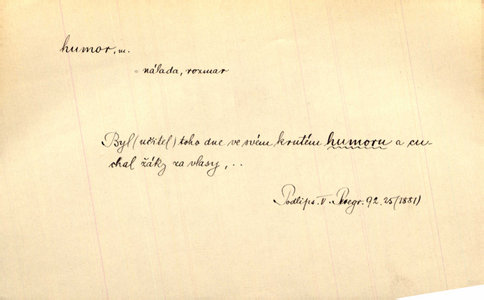 humor, m.
nálada, rozmar
Byl (učitel) toho dne ve svém krutém humoru a cu-
chal žáky za vlasy, ..
Podlips. V. Peregr. 92.25 (1881)